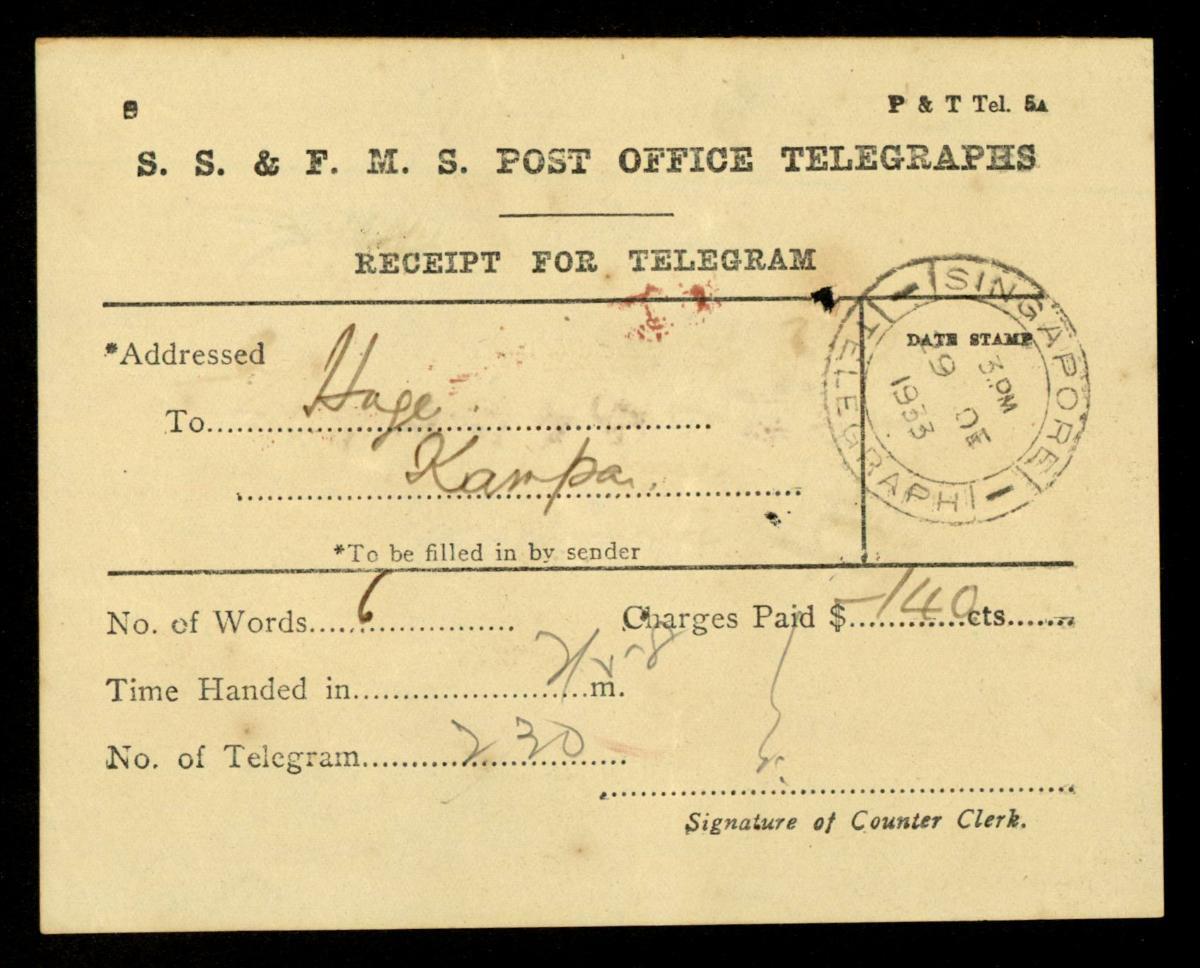 8
P & T Tel. 5A
S. S. & F. M. S. POST OFFICE TELEGRAPHS
RECEIPT FOR TELEGRAM
*Addressed
To Hage
Kampar
*To be filled in by sender
DATE STAMP
SINGAPORE
TELEGRAPH
3.PM
29 DE
1933
No. of Words 6
Charges Paid $ -/40 cts
Time Handed in m.
No. of Telegram 230
Signature of Counter Clerk.